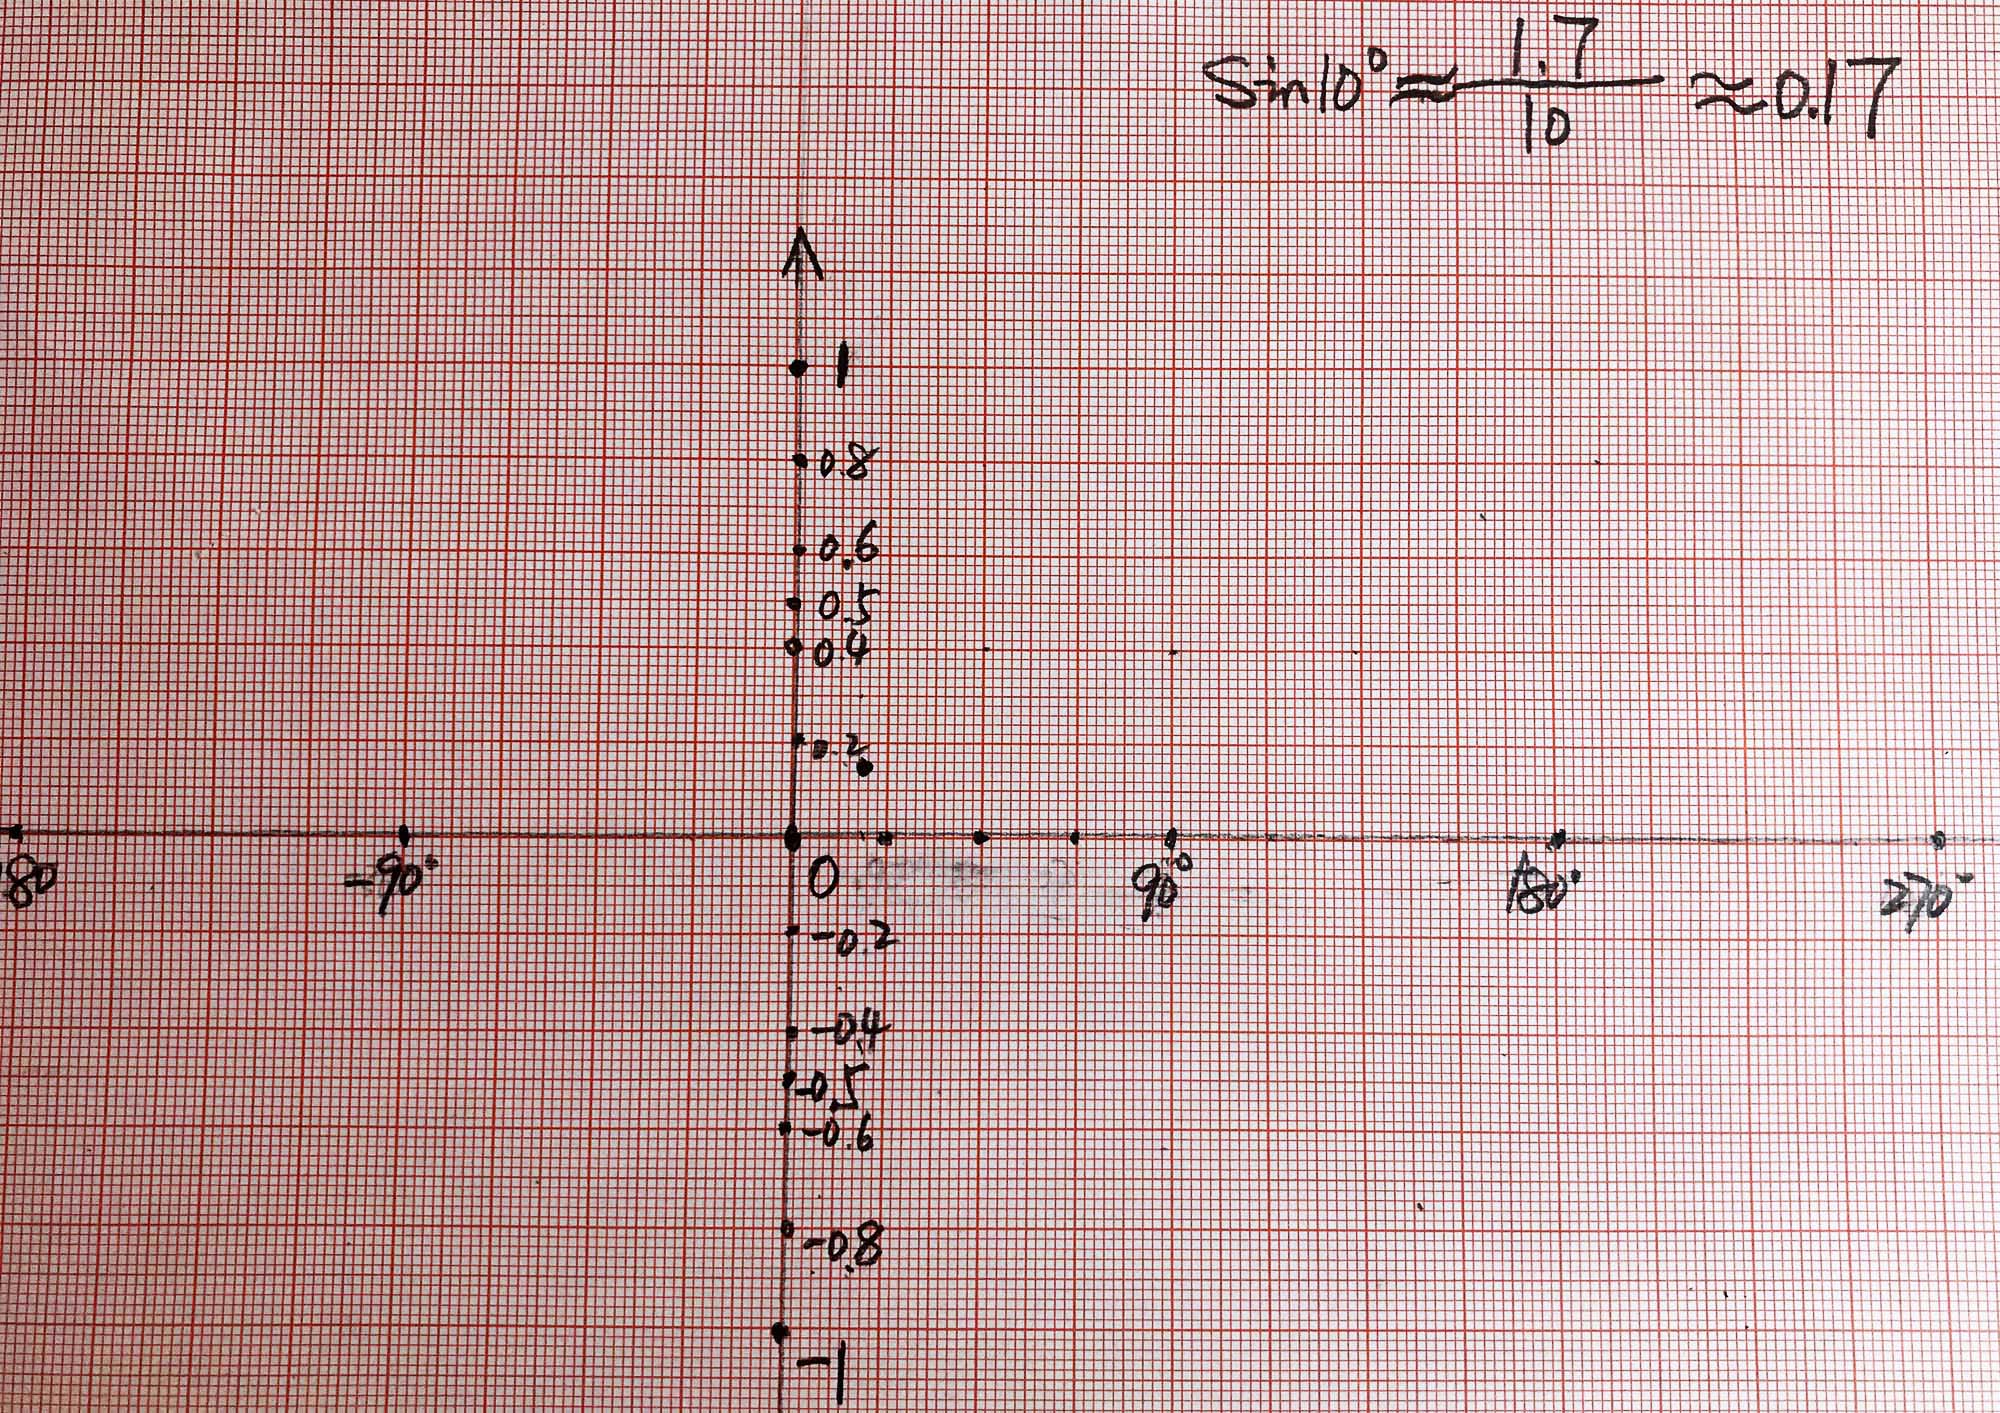 sin10° ≈ 1.7/10 ≈ 0.17
1
0.8
0.6
0.5
0.4
0.2
80 -90° 0 90° 180° 270°
-0.2
-0.4
-0.5
-0.6
-0.8
-1